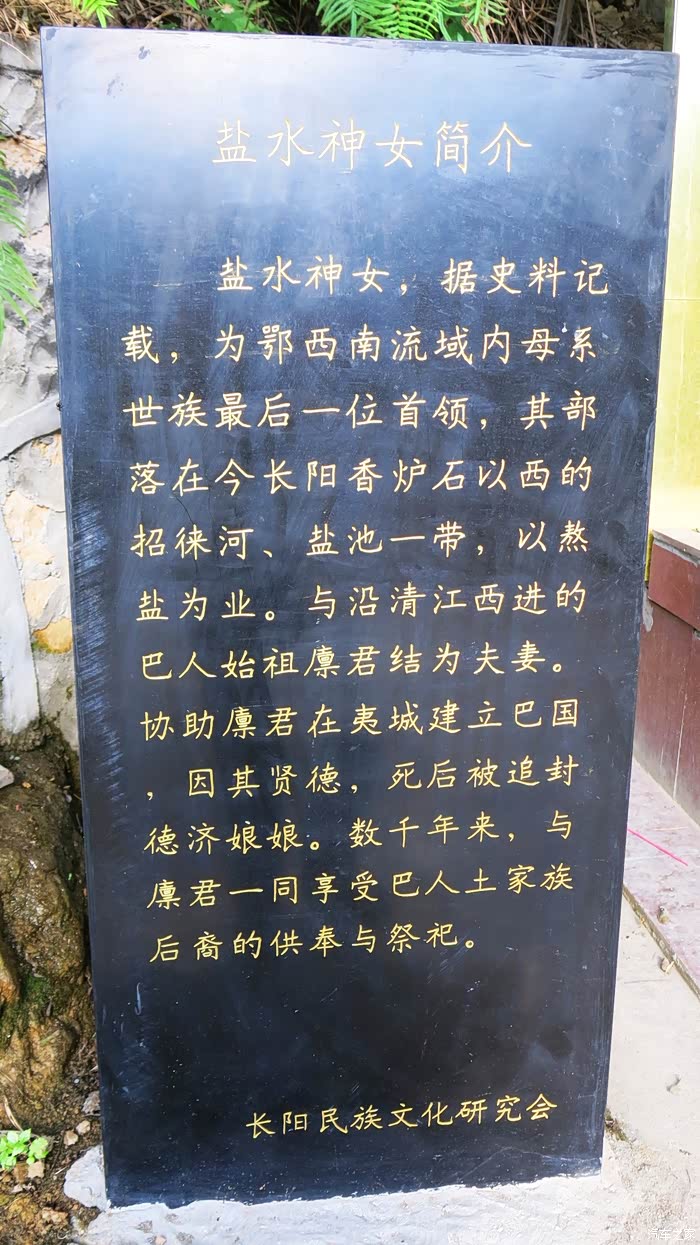 盐水神女简介
盐水神女，据史料记
载，为鄂西南流域内母系
世族最后一位首领，其部
落在今长阳香炉石以西的
招徕河、盐池一带，以熬
盐为业。与沿清江西进的
巴人始祖廪君结为夫妻。
协助廪君在夷城建立巴国
，因其贤德，死后被追封
德济娘娘。数千年来，与
廪君一同享受巴人土家族
后裔的供奉与祭祀。
长阳民族文化研究会
汽车之家